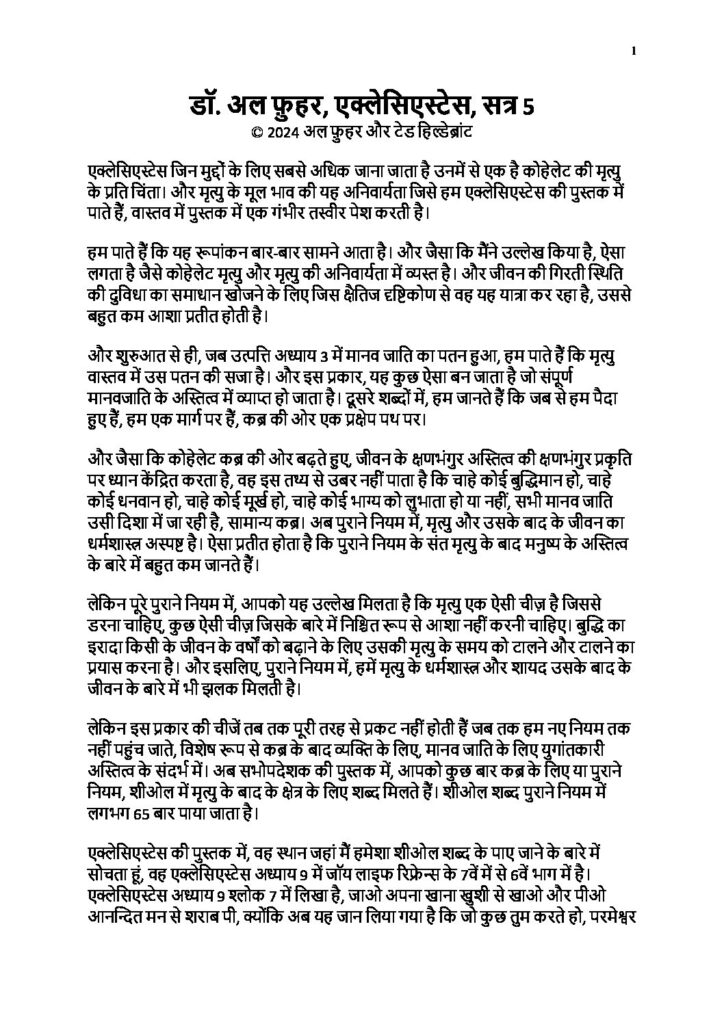 1
डॉ. अल फ़ुहर, एक्लेसिएस्टेस, सत्र 5
© 2024 अल फ़ुहर और टेड हिल्डेब्रांट
एक्लेसिएस्टेस जिन मुद्दों के लिए सबसे अधिक जाना जाता है उनमें से एक है कोहेलेट की मृत्यु
के प्रति चिंता। और मृत्यु के मूल भाव की यह अनिवार्यता जिसे हम एक्लेसिएस्टेस की पुस्तक में
पाते हैं, वास्तव में पुस्तक में एक गंभीर तस्वीर पेश करती है।
हम पाते हैं कि यह रूपांकन बार-बार सामने आता है। और जैसा कि मैंने उल्लेख किया है, ऐसा
लगता है जैसे कोहेलेट मृत्यु और मृत्यु की अनिवार्यता में व्यस्त है। और जीवन की गिरती स्थिति
की दुविधा का समाधान खोजने के लिए जिस क्षैतिज दृष्टिकोण से वह यह यात्रा कर रहा है, उससे
बहुत कम आशा प्रतीत होती है।
और शुरुआत से ही, जब उत्पत्ति अध्याय 3 में मानव जाति का पतन हुआ, हम पाते हैं कि मृत्यु
वास्तव में उस पतन की सजा है। और इस प्रकार, यह कुछ ऐसा बन जाता है जो संपूर्ण
मानवजाति के अस्तित्व में व्याप्त हो जाता है। दूसरे शब्दों में, हम जानते हैं कि जब से हम पैदा
हुए हैं, हम एक मार्ग पर हैं, कब्र की ओर एक प्रक्षेप पथ पर।
और जैसा कि कोहेलेट कब्र की ओर बढ़ते हुए, जीवन के क्षणभंगुर अस्तित्व की क्षणभंगुर प्रकृति
पर ध्यान केंद्रित करता है, वह इस तथ्य से उबर नहीं पाता है कि चाहे कोई बुद्धिमान हो, चाहे
कोई धनवान हो, चाहे कोई मूर्ख हो, चाहे कोई भाग्य को लुभाता हो या नहीं, सभी मानव जाति
उसी दिशा में जा रही है, सामान्य कब्र। अब पुराने नियम में, मृत्यु और उसके बाद के जीवन का
धर्मशास्त्र अस्पष्ट है। ऐसा प्रतीत होता है कि पुराने नियम के संत मृत्यु के बाद मनुष्य के अस्तित्व
के बारे में बहुत कम जानते हैं।
लेकिन पूरे पुराने नियम में, आपको यह उल्लेख मिलता है कि मृत्यु एक ऐसी चीज़ है जिससे
डरना चाहिए, कुछ ऐसी चीज़ जिसके बारे में निश्चित रूप से आशा नहीं करनी चाहिए। बुद्धि का
इरादा किसी के जीवन के वर्षों को बढ़ाने के लिए उसकी मृत्यु के समय को टालने और टालने का
प्रयास करना है। और इसलिए, पुराने नियम में, हमें मृत्यु के धर्मशास्त्र और शायद उसके बाद के
जीवन के बारे में भी झलक मिलती है।
लेकिन इस प्रकार की चीजें तब तक पूरी तरह से प्रकट नहीं होती हैं जब तक हम नए नियम तक
नहीं पहुंच जाते, विशेष रूप से कब्र के बाद व्यक्ति के लिए, मानव जाति के लिए युगांतकारी
अस्तित्व के संदर्भ में। अब सभोपदेशक की पुस्तक में, आपको कुछ बार कब्र के लिए या पुराने
नियम, शीओल में मृत्यु के बाद के क्षेत्र के लिए शब्द मिलते हैं। शीओल शब्द पुराने नियम में
लगभग 65 बार पाया जाता है।
एक्लेसिएस्टेस की पुस्तक में, वह स्थान जहां मैं हमेशा शीओल शब्द के पाए जाने के बारे में
सोचता हूं, वह एक्लेसिएस्टेस अध्याय 9 में जॉय लाइफ रिफ्रेन्स के 7वें में से 6वें भाग में है।
एक्लेसिएस्टेस अध्याय 9 श्लोक 7 में लिखा है, जाओ अपना खाना खुशी से खाओ और पीओ
आनन्दित मन से शराब पी, क्योंकि अब यह जान लिया गया है कि जो कुछ तुम करते हो, परमेश्वर